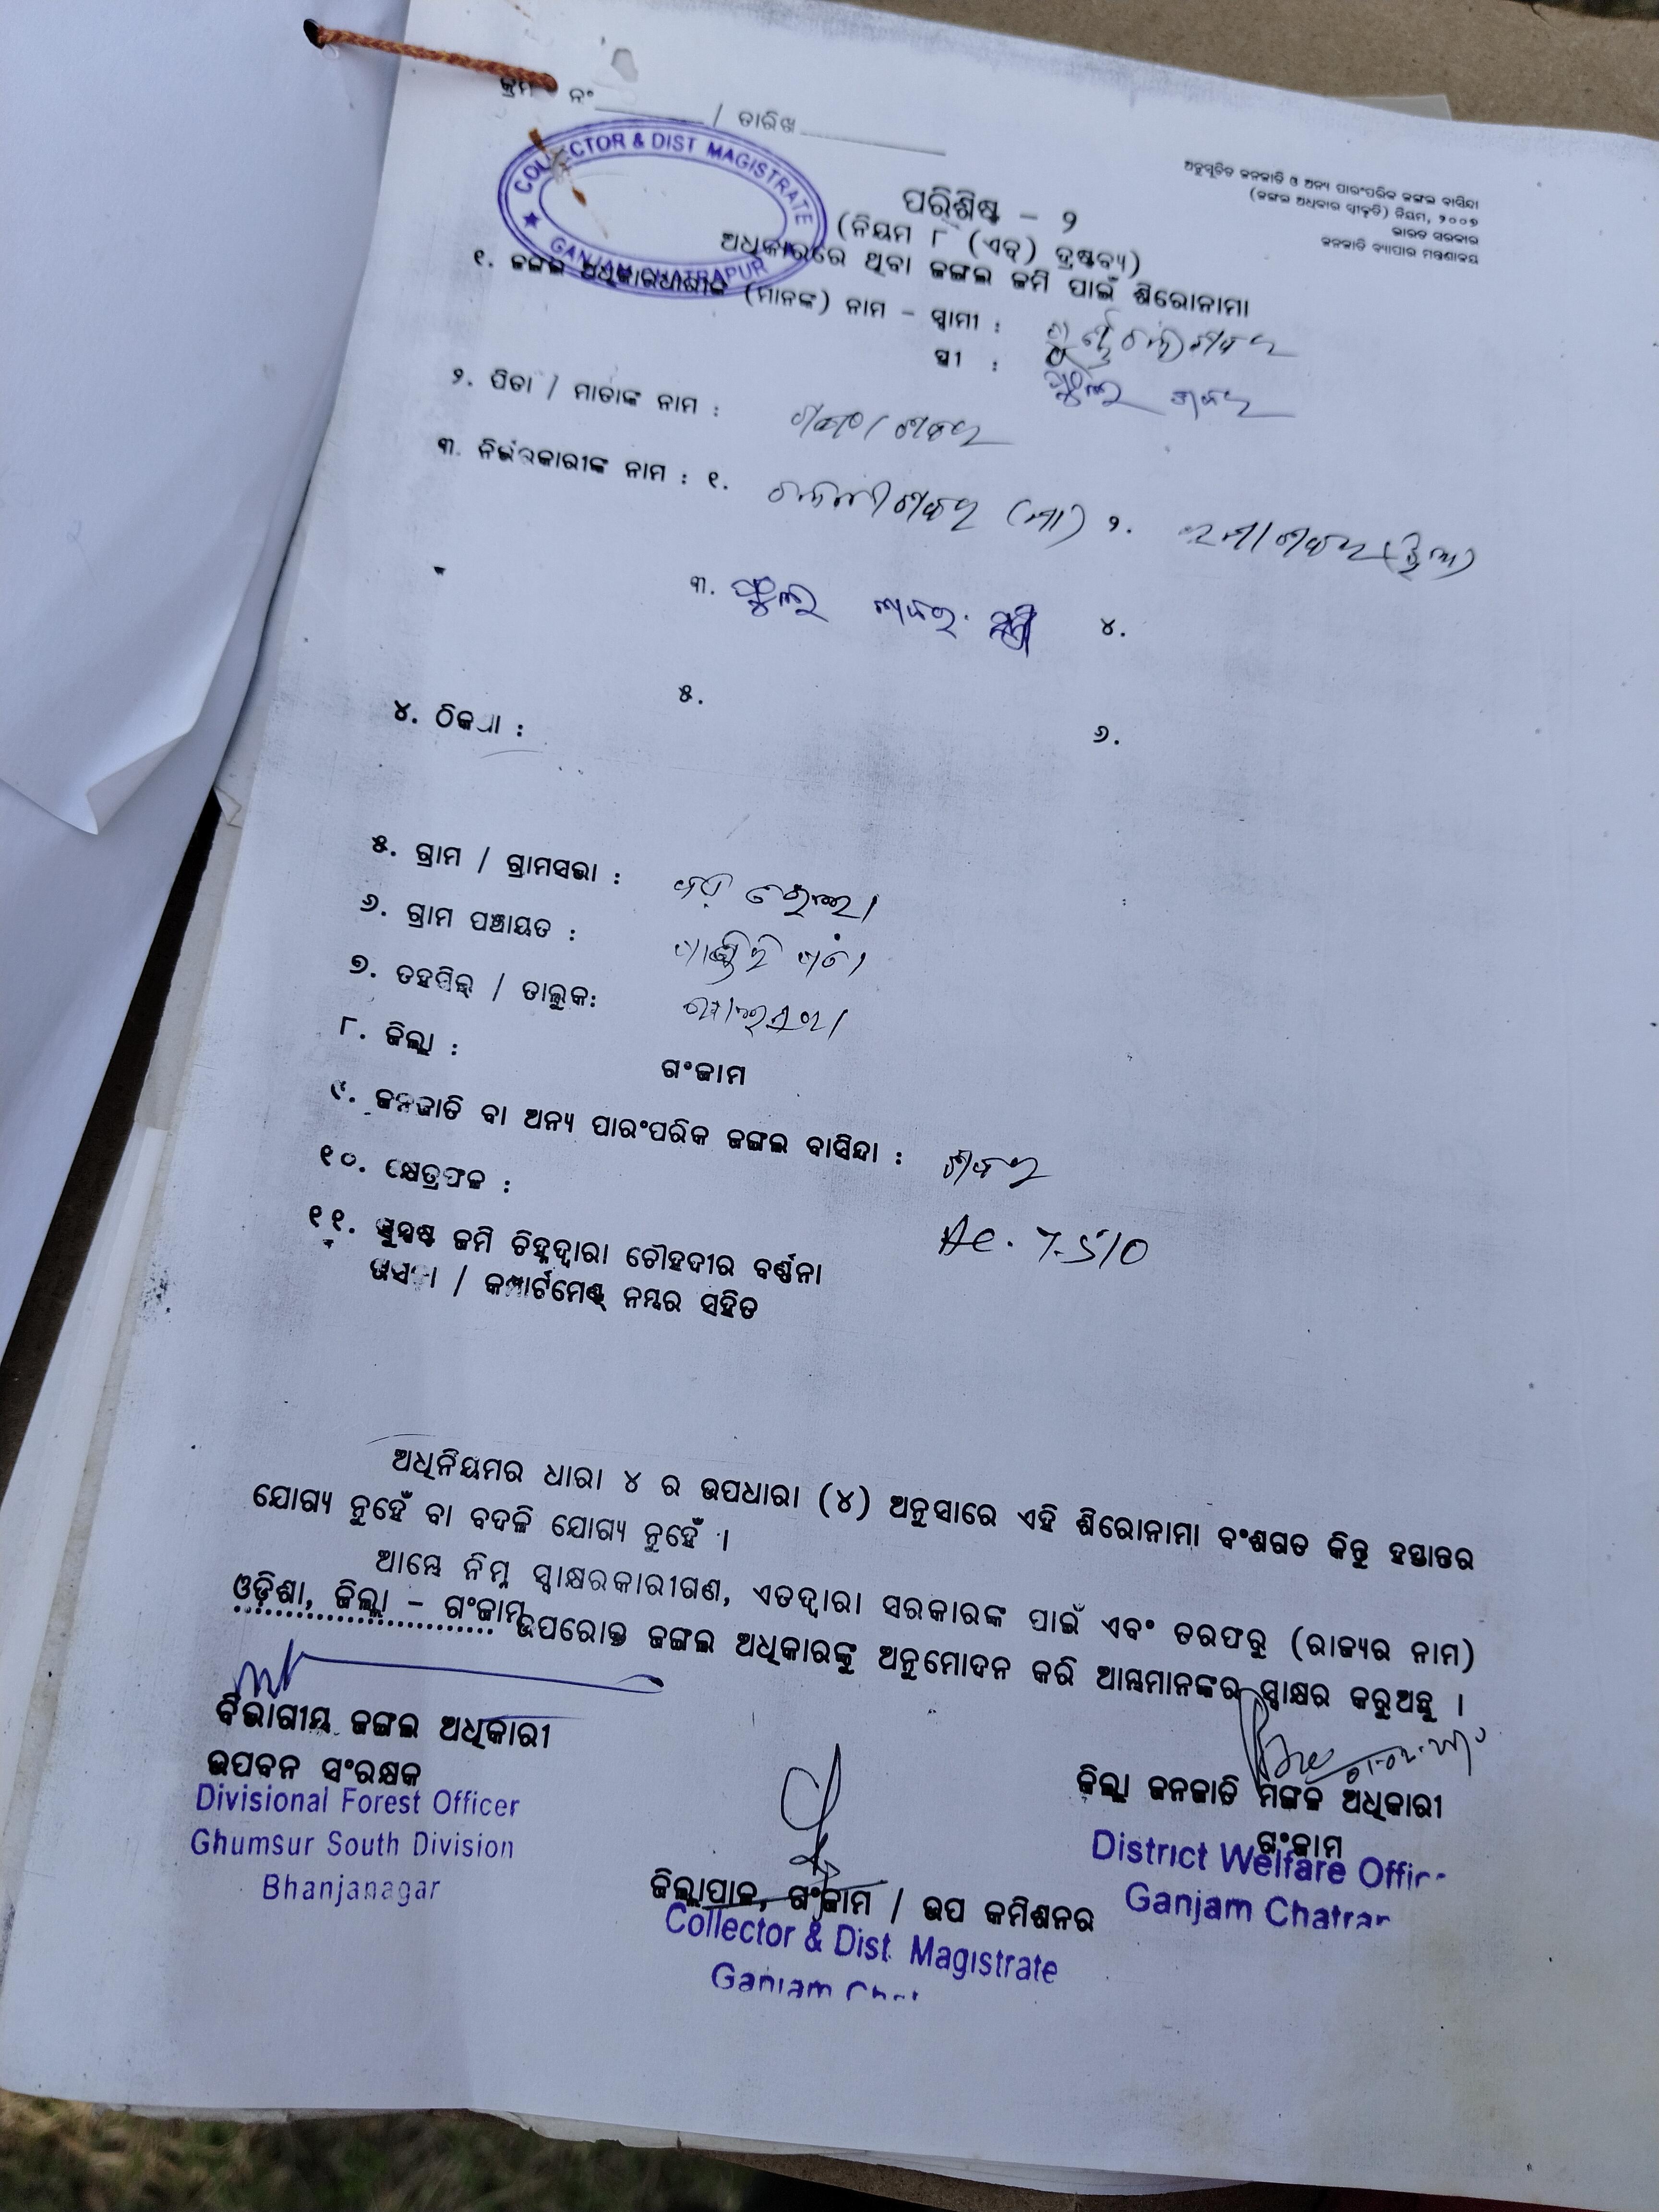 କ୍ରମ ନଂ / ତାରିଖ
COLLECTOR & DIST MAGISTRATE
GANJAM CHATRAPUR
ଅନୁସୂଚିତ ଜନଜାତି ଓ ଅନ୍ୟ ପାରଂପରିକ ଜଙ୍ଗଲ ବାସିନ୍ଦା
(ଜଙ୍ଗଲ ଅଧିକାର ସ୍ୱୀକୃତି) ନିୟମ, ୨୦୦୭
ଭାରତ ସରକାର
ଜନଜାତି ବ୍ୟାପାର ମନ୍ତ୍ରଣାଳୟ
ପରିଶିଷ୍ଟ – ୨
(ନିୟମ ୮ (ଏଚ୍) ଦ୍ରଷ୍ଟବ୍ୟ)
ଅଧିକାରରେ ଥିବା ଜଙ୍ଗଲ ଜମି ପାଇଁ ଶିରୋନାମା
୧. ଜଙ୍ଗଲ ଅଧିକାରଧାରୀଙ୍କ (ମାନଙ୍କ) ନାମ – ସ୍ୱାମୀ : ଶବର
ସ୍ତ୍ରୀ : ଫୁଲ ଶବର
୨. ପିତା / ମାତାଙ୍କ ନାମ : ଶବର
୩. ନିର୍ଭରକାରୀଙ୍କ ନାମ : ୧. ଶବର (ମା) ୨. ଶବର (ଝିଅ)
୩. ଫୁଲ ଶବର ସ୍ତ୍ରୀ ୪.
୫. ୬.
୪. ଠିକଣା :
୫. ଗ୍ରାମ / ଗ୍ରାମସଭା :
୬. ଗ୍ରାମ ପଞ୍ଚାୟତ :
୭. ତହସିଲ୍ / ତାଲୁକ:
୮. ଜିଲ୍ଲା : ଗଂଜାମ
୯. ଜନଜାତି ବା ଅନ୍ୟ ପାରଂପରିକ ଜଙ୍ଗଲ ବାସିନ୍ଦା : ଶବର
୧୦. କ୍ଷେତ୍ରଫଳ : Ac. 7.510
୧୧. ସୁସ୍ପଷ୍ଟ ଜମି ଚିହ୍ନଦ୍ୱାରା ଚୌହଦୀର ବର୍ଣ୍ଣନା
ଖସଡ଼ା / କମ୍ପାର୍ଟମେଣ୍ଟ୍ ନମ୍ବର ସହିତ
ଅଧିନିୟମର ଧାରା ୪ ର ଉପଧାରା (୪) ଅନୁସାରେ ଏହି ଶିରୋନାମା ବଂଶଗତ କିନ୍ତୁ ହସ୍ତାନ୍ତର
ଯୋଗ୍ୟ ନୁହେଁ ବା ବଦଳି ଯୋଗ୍ୟ ନୁହେଁ ।
ଆମ୍ଭେ ନିମ୍ନ ସ୍ୱାକ୍ଷରକାରୀଗଣ, ଏତଦ୍ୱାରା ସରକାରଙ୍କ ପାଇଁ ଏବଂ ତରଫରୁ (ରାଜ୍ୟର ନାମ)
ଓଡ଼ିଶା, ଜିଲ୍ଲା – ଗଂଜାମ ଉପରୋକ୍ତ ଜଙ୍ଗଲ ଅଧିକାରଙ୍କୁ ଅନୁମୋଦନ କରି ଆମ୍ଭମାନଙ୍କର ସ୍ୱାକ୍ଷର କରୁଅଛୁ ।
ବିଭାଗୀୟ ଜଙ୍ଗଲ ଅଧିକାରୀ
ଉପବନ ସଂରକ୍ଷକ
Divisional Forest Officer
Ghumsur South Division
Bhanjanagar
ଜିଲ୍ଲାପାଳ, ଗଂଜାମ / ଉପ କମିଶନର
Collector & Dist. Magistrate
Ganjam
ଜିଲ୍ଲା ଜନଜାତି ମଙ୍ଗଳ ଅଧିକାରୀ
ଗଂଜାମ
District Welfare Officer
Ganjam